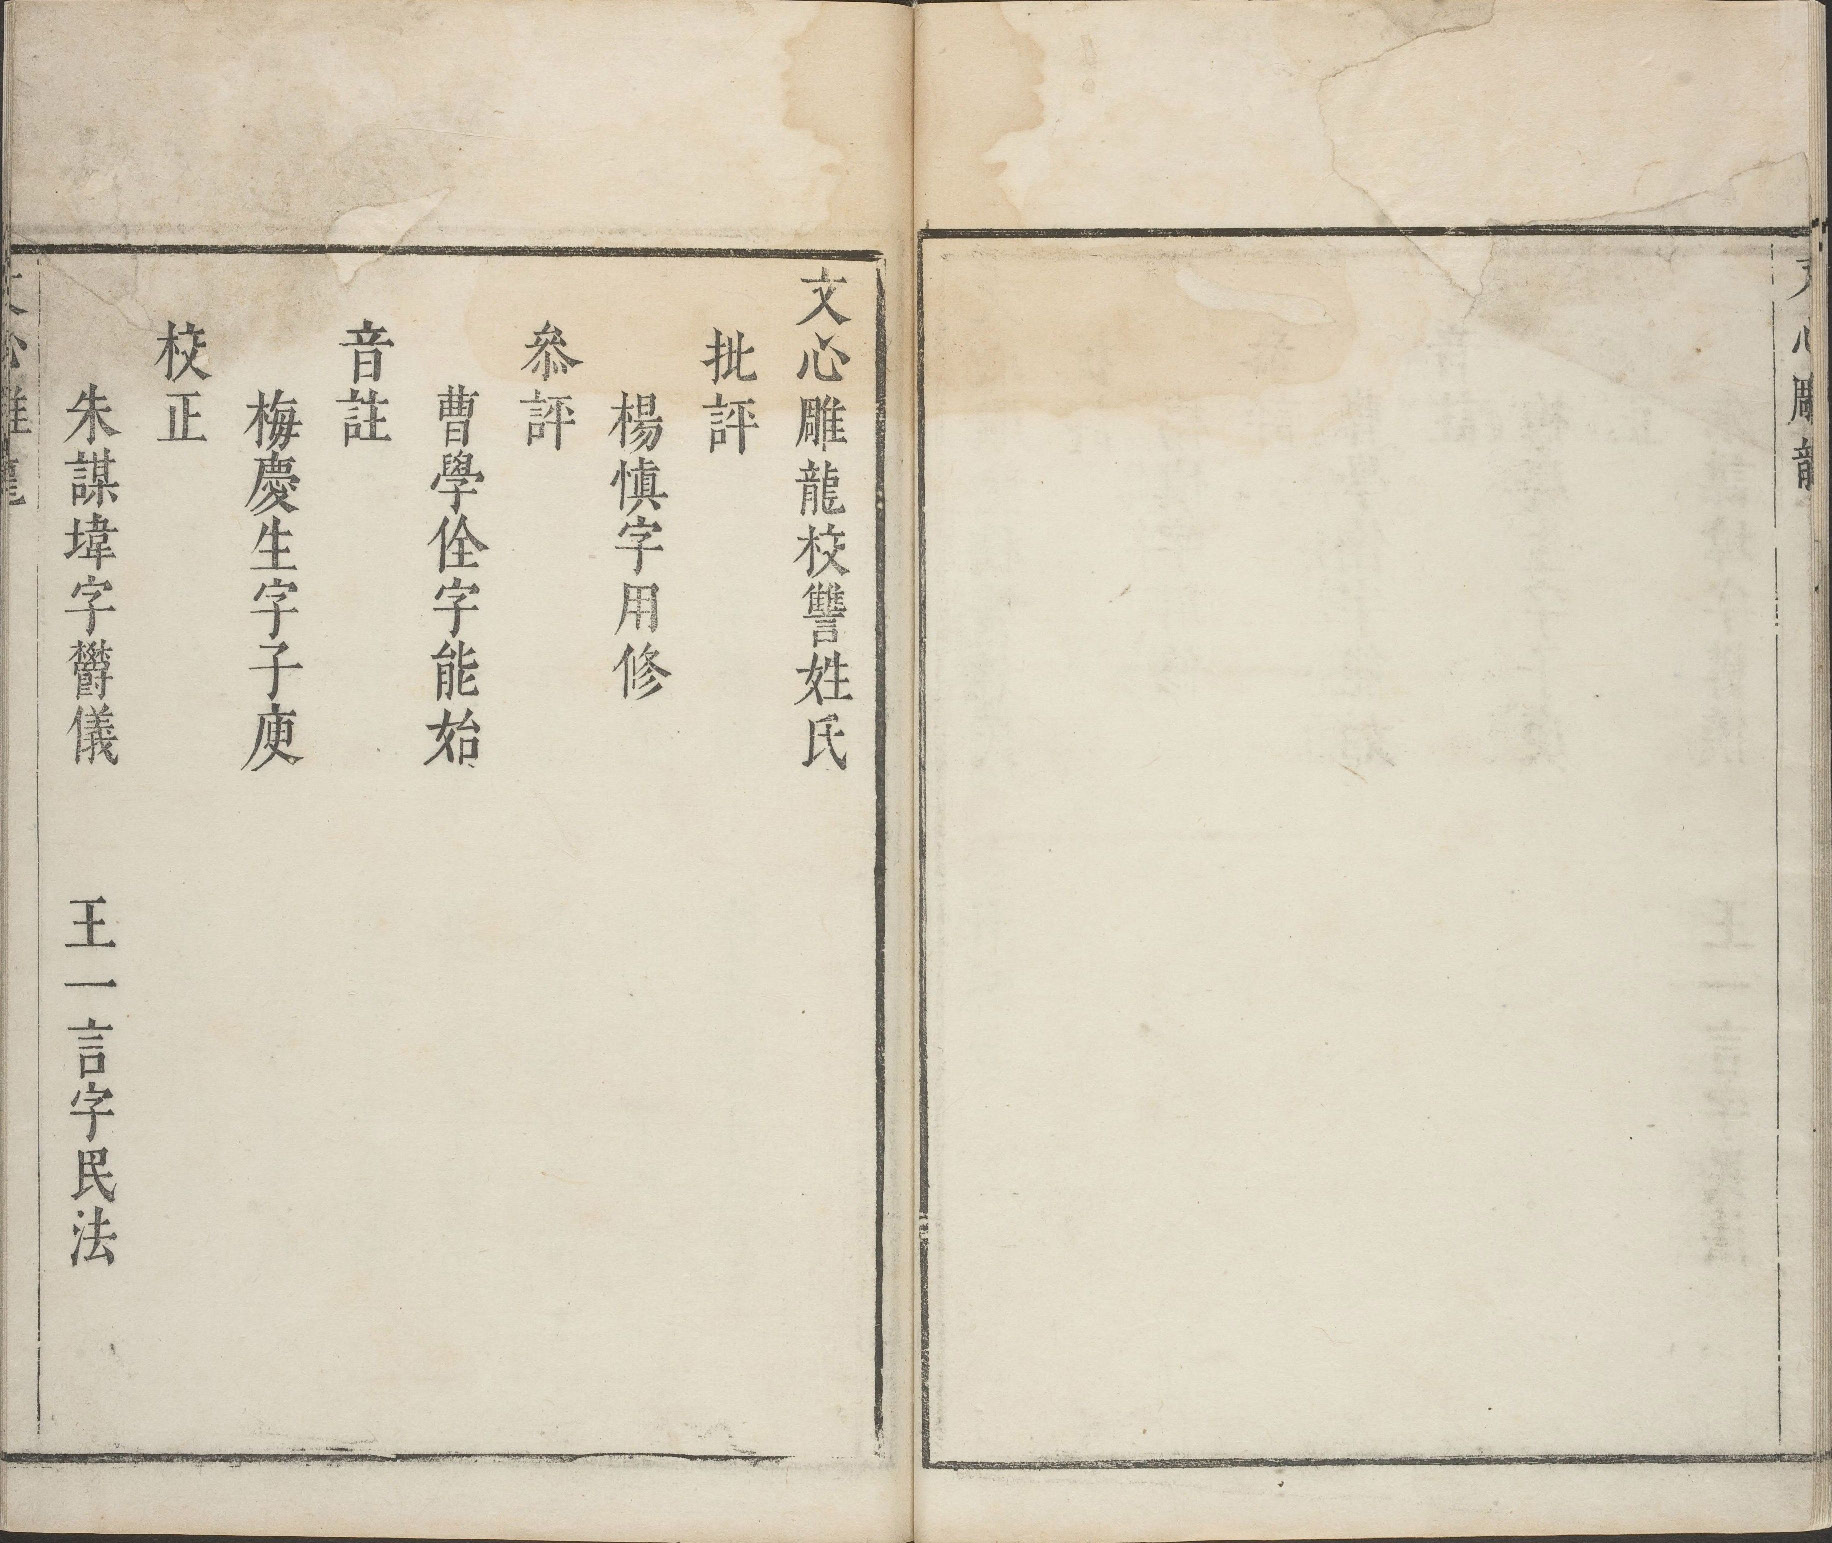 文心雕龍
文心雕龍校讐姓氏
批評
楊慎字用修
叅評
曹學佺字能始
音註
梅慶生字子庾
校正
朱謀㙔字欝儀 王一言字民法
文心雕龍